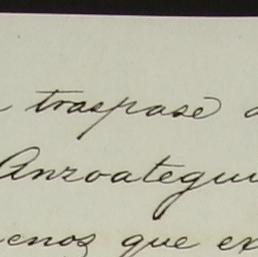 traspase
Anzoategui
enos que ex